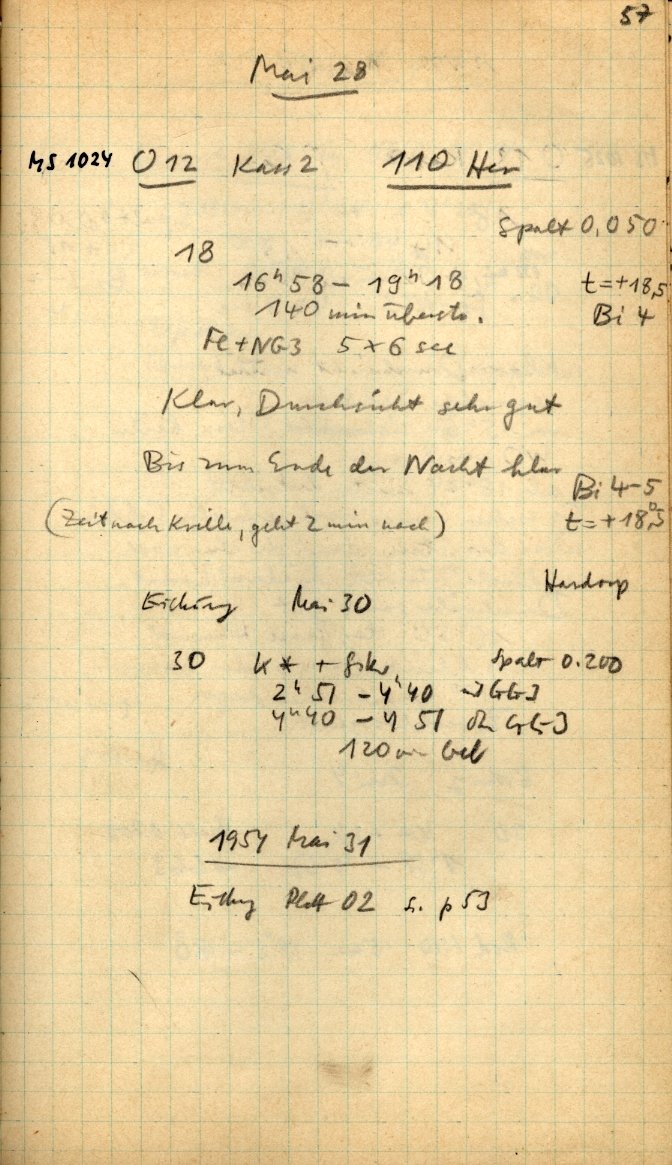 57
Mai 28
MS 1024 O 12 Kass 2 110 Her
Spalt 0,050
18
16ʰ 58 – 19ʰ 18 t = +18,5
140 min überst. Bi 4
Fe + NG3 5 × 6 sec
Klar, Durchsicht sehr gut
Bis zum Ende der Nacht klar
Bi 4–5
(Zeit nach Krille, geht 2 min nach) t = +18°,5
Hardorp
Eichung Mai 30
30 K * + Spalt 0.200
2ʰ 51 – 4ʰ 40 GG3
4ʰ 40 – 4 51 GG3
120
1954 Mai 31
Eichung Platt O2 s. p 53